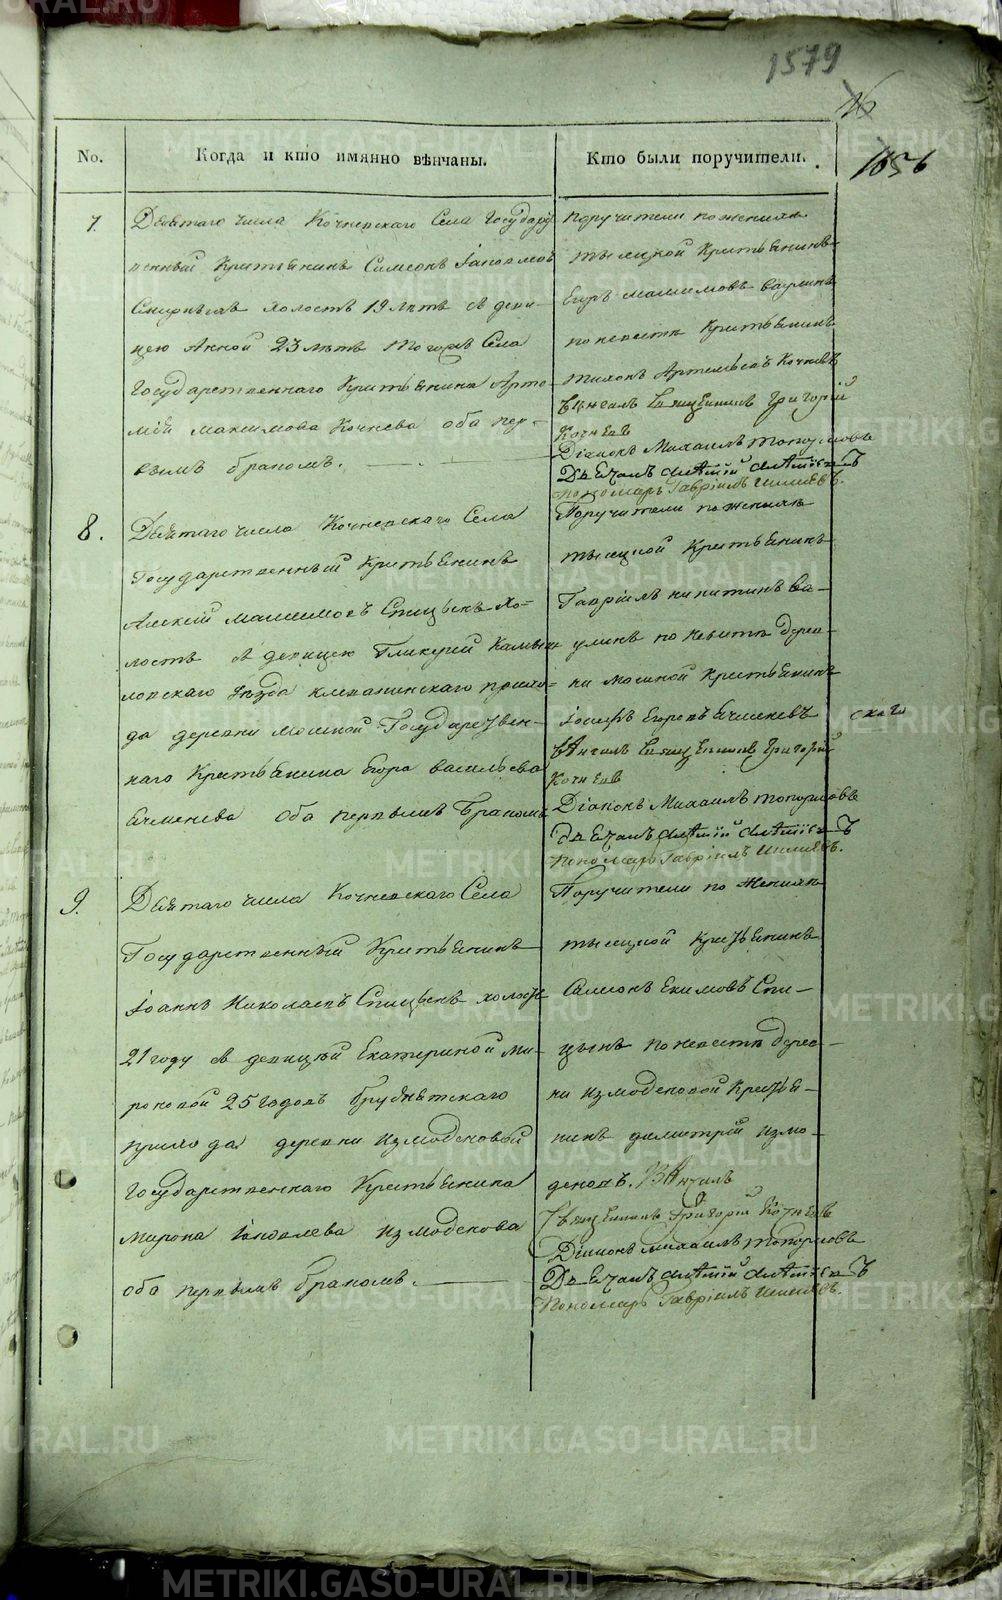 1579
1656
No.
Когда и кто имянно вѣнчаны.
Кто были поручители.
7.
Девятаго числа Кочневскаго Села Государ
венный Крестьянинъ Симеонъ Іаковлевъ
холостъ 19 лѣтъ съ деви-
цею Анной 23 лѣтъ тогожъ Села
Государственнаго Крестьянина Арте-
мія Максимова Кочнева оба пер-
вымъ бракомъ.
Поручители по женихѣ
тысяцкой Крестьянинъ
Егоръ Максимовъ Ваулинъ
по невестѣ Крестьянинъ
Тихонъ Артемьевъ Кочневъ
Вѣнчалъ Священникъ Григорій
Кочневъ
Діаконъ Михаилъ Топорковъ
Дьячекъ
Пономарь Гавріилъ
8.
Девятаго числа Кочневскаго Села
Государственный Крестьянинъ
Алексій Максимовъ Спицынъ хо-
лостъ съ девицею Гликеріей Камыш
ловскаго уезда Клевакинскаго прихо-
да деревни Мосиной Государствен-
наго Крестьянина Егора Васильева
Ячменева оба первымъ бракомъ
Поручители по женихѣ
тысяцкой Крестьянинъ
Гавріилъ Никитинъ Ва-
улинъ по невестѣ дерев-
ни Мосиной Крестьянинъ
Іосифъ Егоровъ Ячменевъ
скаго
Вѣнчалъ Священникъ Григорій
Кочневъ
Діаконъ Михаилъ Топорковъ
Дьячекъ
Пономарь Гавріилъ
9.
Девятаго числа Кочневскаго Села
Государственный Крестьянинъ
Іоаннъ Николаевъ Спицынъ холостъ
21 году съ девицей Екатериной Ми-
роновой 25 годовъ Бруснятскаго
прихода деревни Измоденовой
Государственнаго Крестьянина
Мирона Яковлева Измоденова
оба первымъ бракомъ.
Поручители по женихѣ
тысяцкой Крестьянинъ
Симеонъ Екимовъ Спи-
цынъ по невестѣ дерев-
ни Измоденовой Крестья-
нинъ Димитрій Измо-
деновъ. Вѣнчалъ
Священникъ Григорій Кочневъ
Діаконъ Михаилъ Топорковъ
Дьячекъ
Пономарь Гавріилъ
METRIKI.GASO-URAL.RU